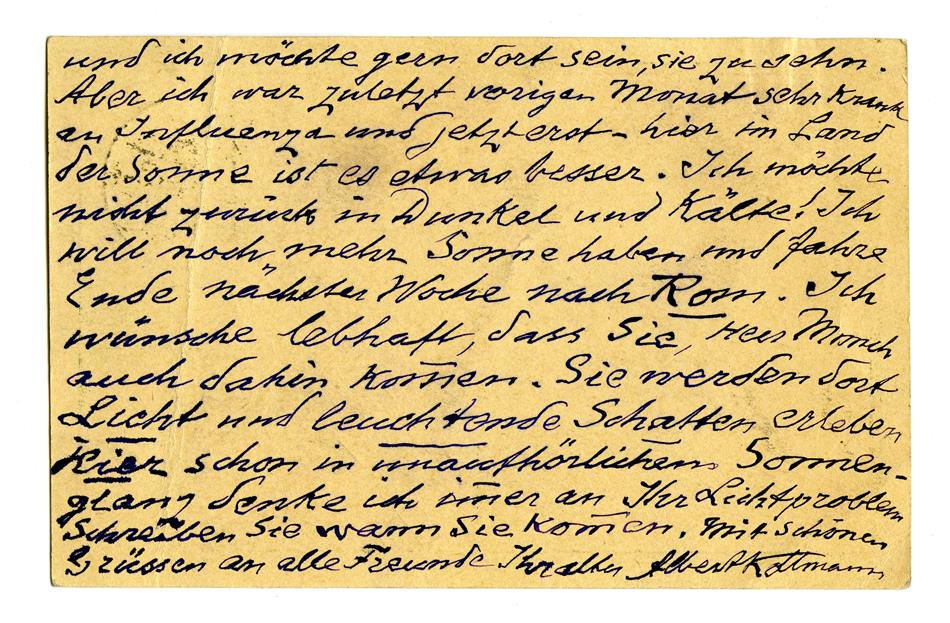 und ich möchte gern dort sein, sie zu sehn.
Aber ich war zuletzt vorigen Monat sehr krank
an Influenza und jetzt erst – hier im Land
der Sonne ist es etwas besser. Ich möchte
nicht zurück in Dunkel und Kälte! Ich
will noch mehr Sonne haben und fahre
Ende nächster Woche nach Rom. Ich
wünsche lebhaft, dass Sie, Herr Monch
auch dahin kom̅en. Sie werden dort
Licht und leuchtende Schatten erleben
Hier schon in unaufhörlichem Sonnen-
glanz denke ich im̅er an Ihr Lichtproblem
Schreiben Sie wann Sie kom̅en. Mit schönen
Grüssen an alle Freunde Ihr alter Albert Kollmann